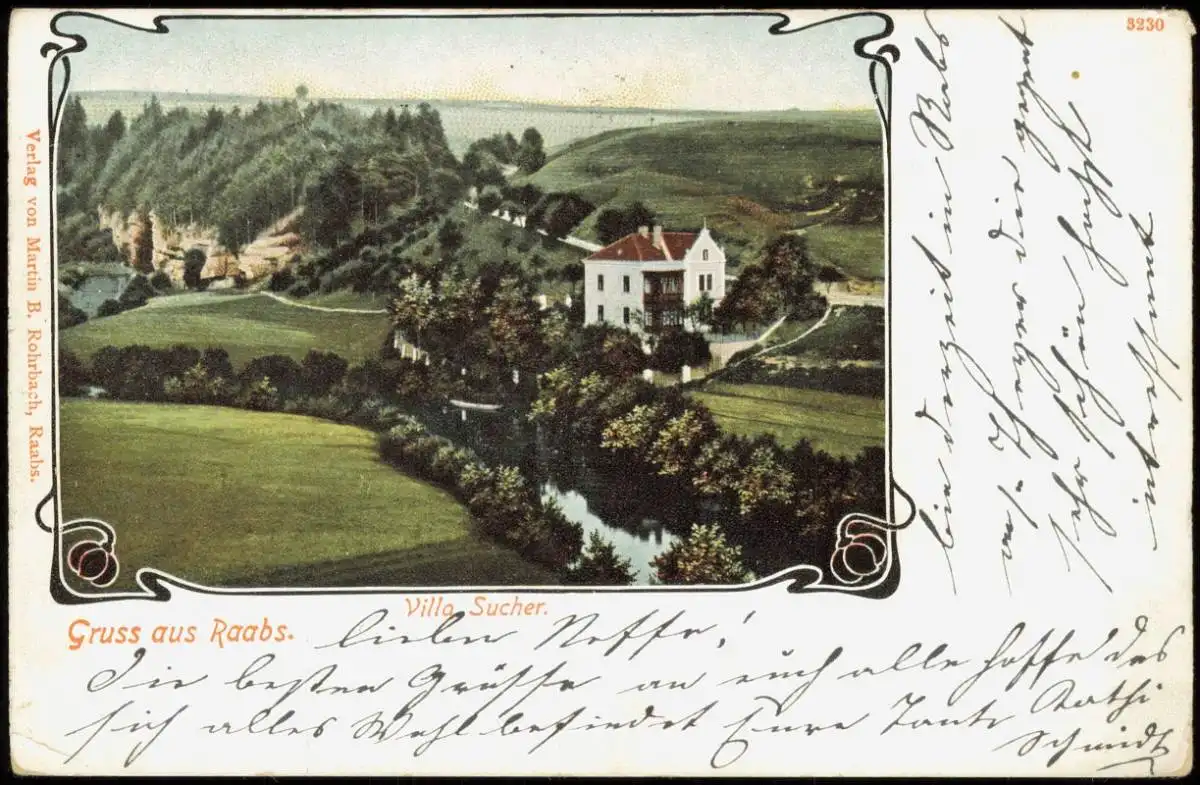 3230
Verlag von Martin B. Rohrbach, Raabs.
Villa Sucher.
Gruss aus Raabs.
lieben Neffe!
Die besten Grüsse an euch alle hoffe das
sich alles Wohl befindet Eure Tante Kathi
Schmidt
bin derzeit in Raabs
sehr schön